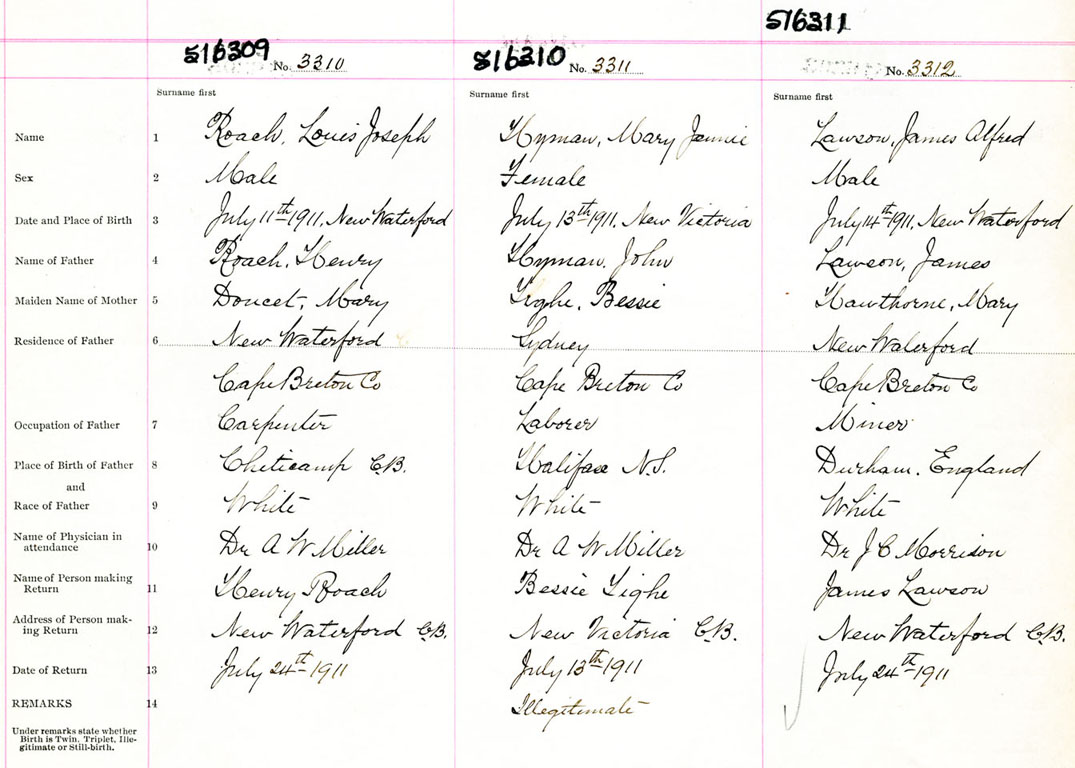 516311
516309 No. 3310 516310 No. 3311 No. 3312
Surname first Surname first Surname first
Name 1 Roach, Louis Joseph Hyman, Mary Jennie Lawson, James Alfred
Sex 2 Male Female Male
Date and Place of Birth 3 July 11th 1911, New Waterford July 13th 1911, New Victoria July 14th 1911, New Waterford
Name of Father 4 Roach, Henry Hyman, John Lawson, James
Maiden Name of Mother 5 Doucet, Mary Tighe, Bessie Hawthorne, Mary
Residence of Father 6 New Waterford Sydney New Waterford
Cape Breton Co Cape Breton Co Cape Breton Co
Occupation of Father 7 Carpenter Laborer Miner
Place of Birth of Father 8 Cheticamp C.B. Halifax N.S. Durham, England
and
Race of Father 9 White White White
Name of Physician in
attendance 10 Dr A W Miller Dr A W Miller Dr J C Morrison
Name of Person making
Return 11 Henry Roach Bessie Tighe James Lawson
Address of Person mak-
ing Return 12 New Waterford C.B. New Victoria C.B. New Waterford C.B.
Date of Return 13 July 24th 1911 July 13th 1911 July 24th 1911
REMARKS 14 Illegitimate
Under remarks state whether
Birth is Twin, Triplet, Ille-
gitimate or Still-birth.